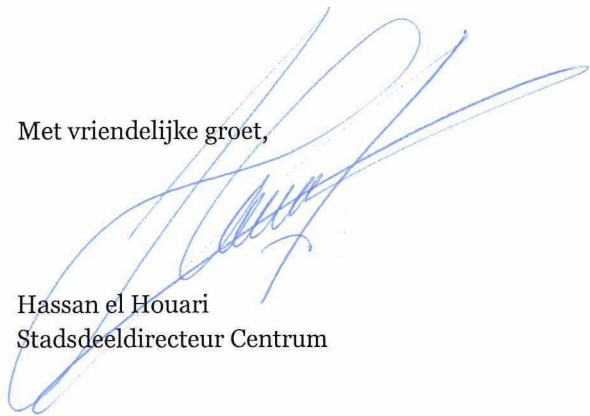 Met vriendelijke groet,
Hassan el Houari
Stadsdeeldirecteur Centrum